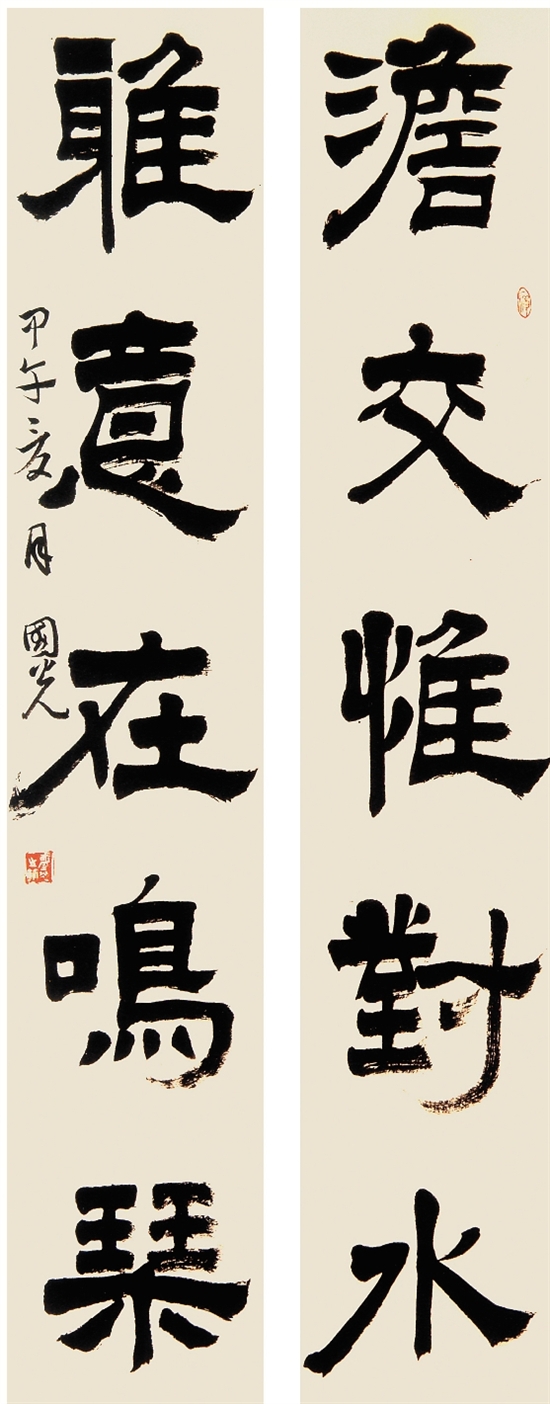 澹交惟對水
雅意在鳴琹
甲午夏月 國光